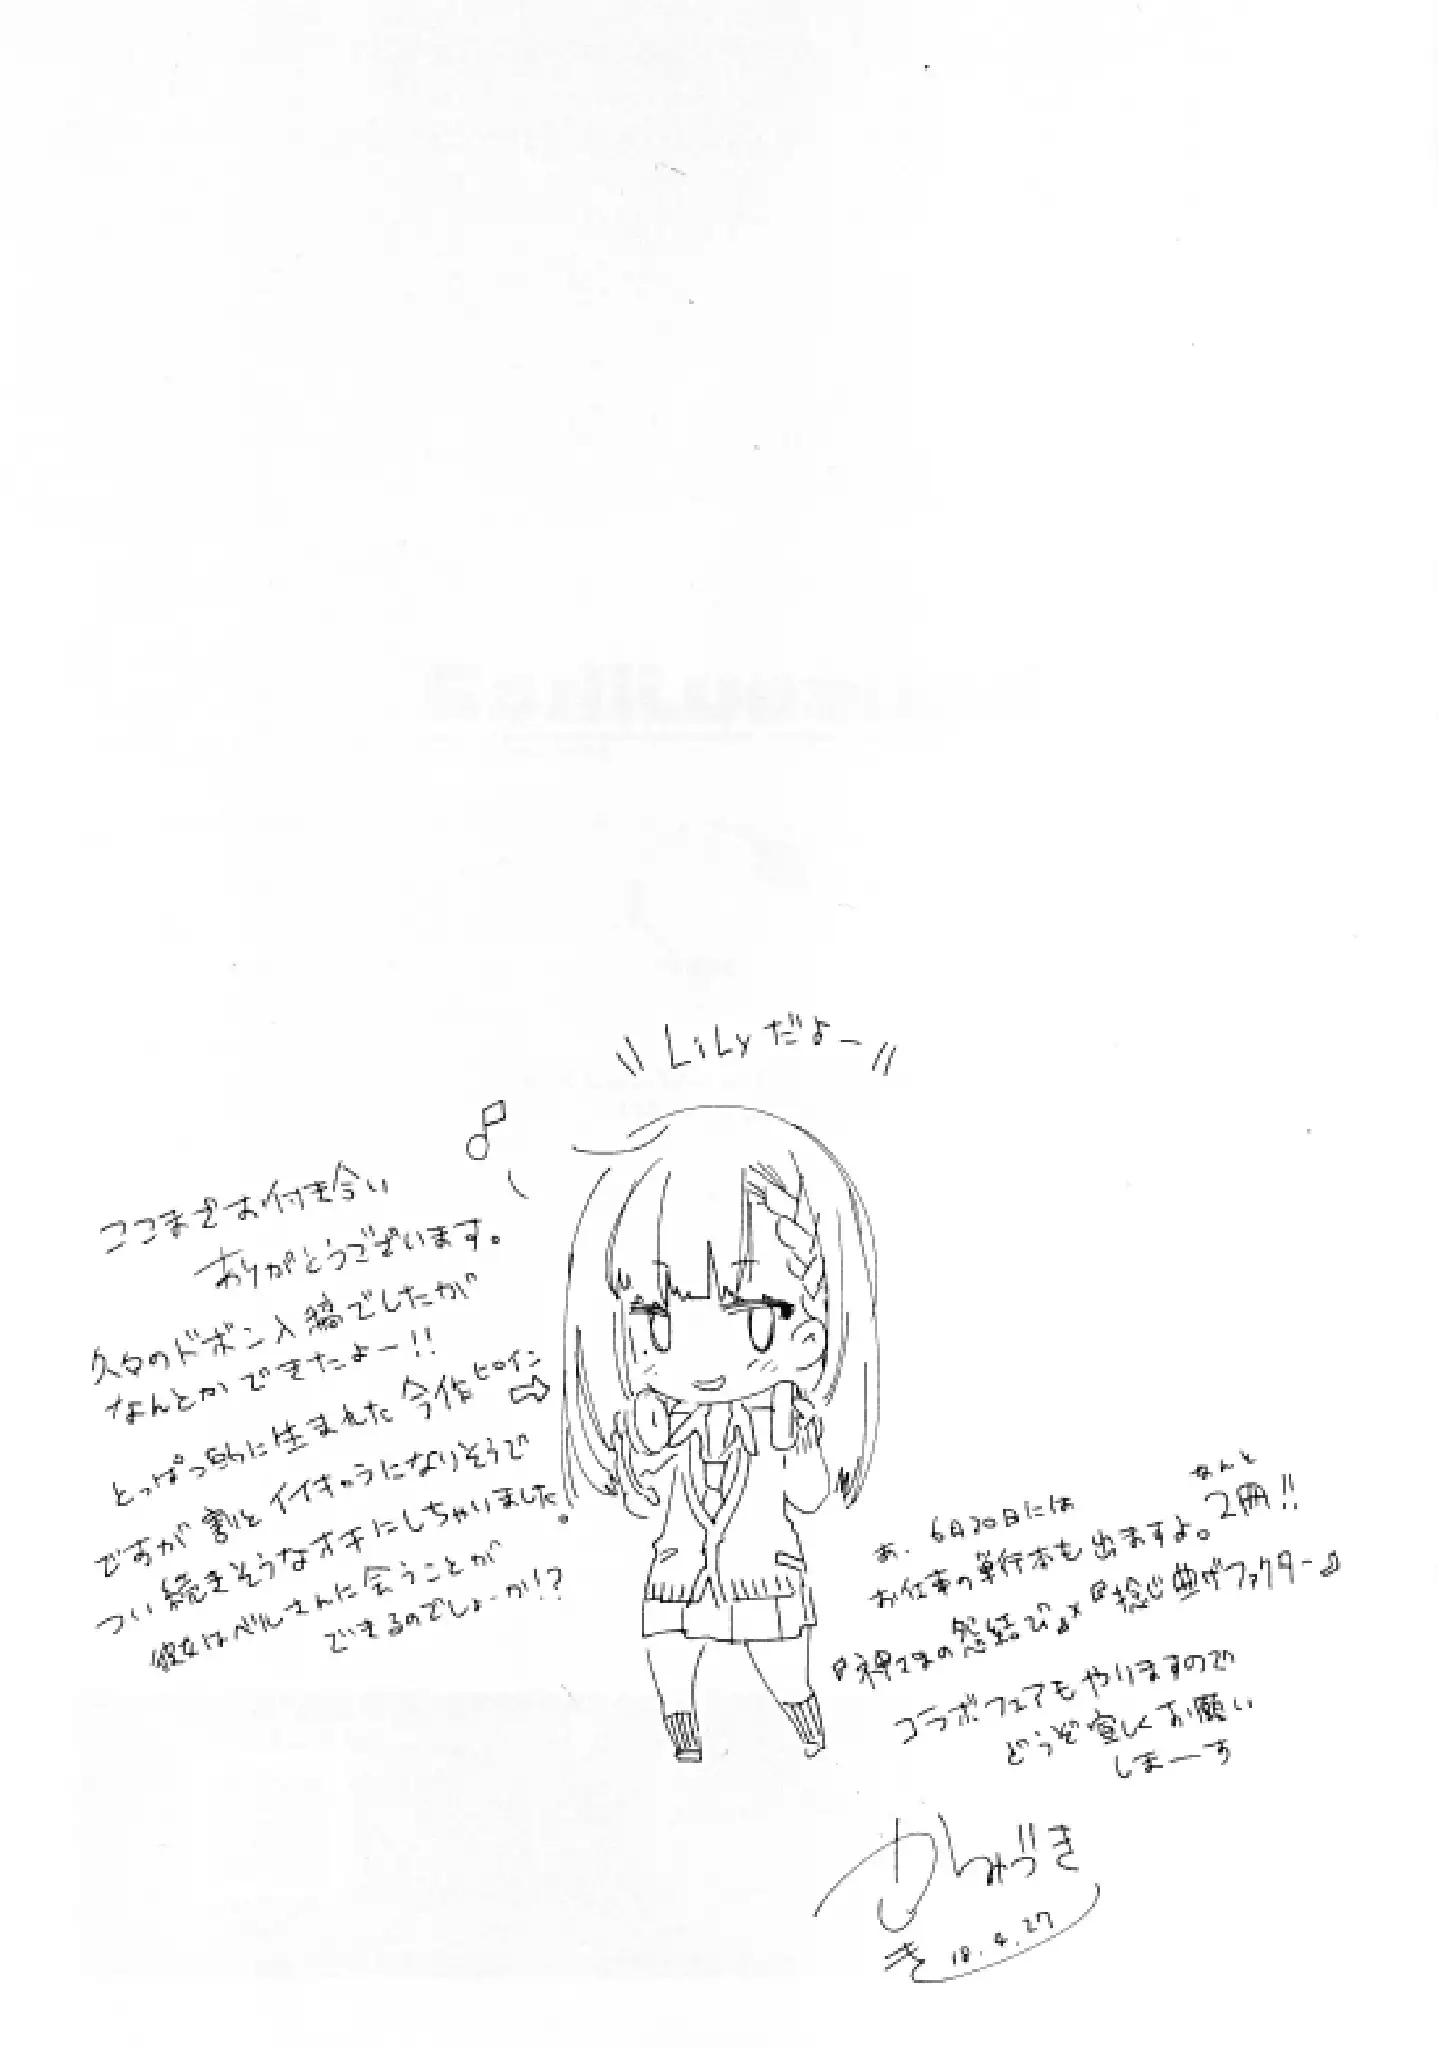 LiLyだよー
ここまでお付き合い
ありがとうございます。
久々のドボン入稿でしたが
なんとかできたよー!!
とっぱつ的に生まれた今作ヒロイン⇨
ですが割とイイキャラになりそうで
つい続きそうなオチにしちゃいました。
彼女はベルさんに会うことが
できるのでしょーか!?
あ、6月30日には
お仕事の単行本も出ますよ。なんと2冊!!
『神さまの怨結び』×『捻じ曲げファクター』
コラボフェアもやりますので
どうぞ宜しくお願い
しまーす
かみづき
18.4.27